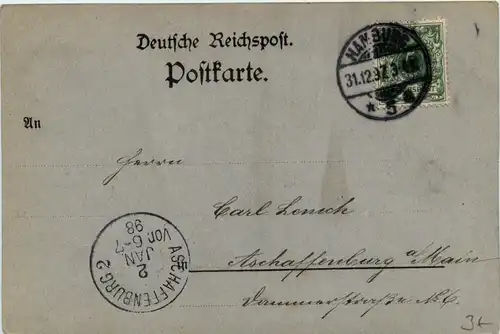 Deutsche Reichspost.
Postkarte.
HAMBURG
31.12.97.
* 5
An
Herrn
Carl
Aschaffenburg a/Main
Dammerstraße No 6.
ASCHAFFENBURG 2
2
JAN
Vor. 6-7
98